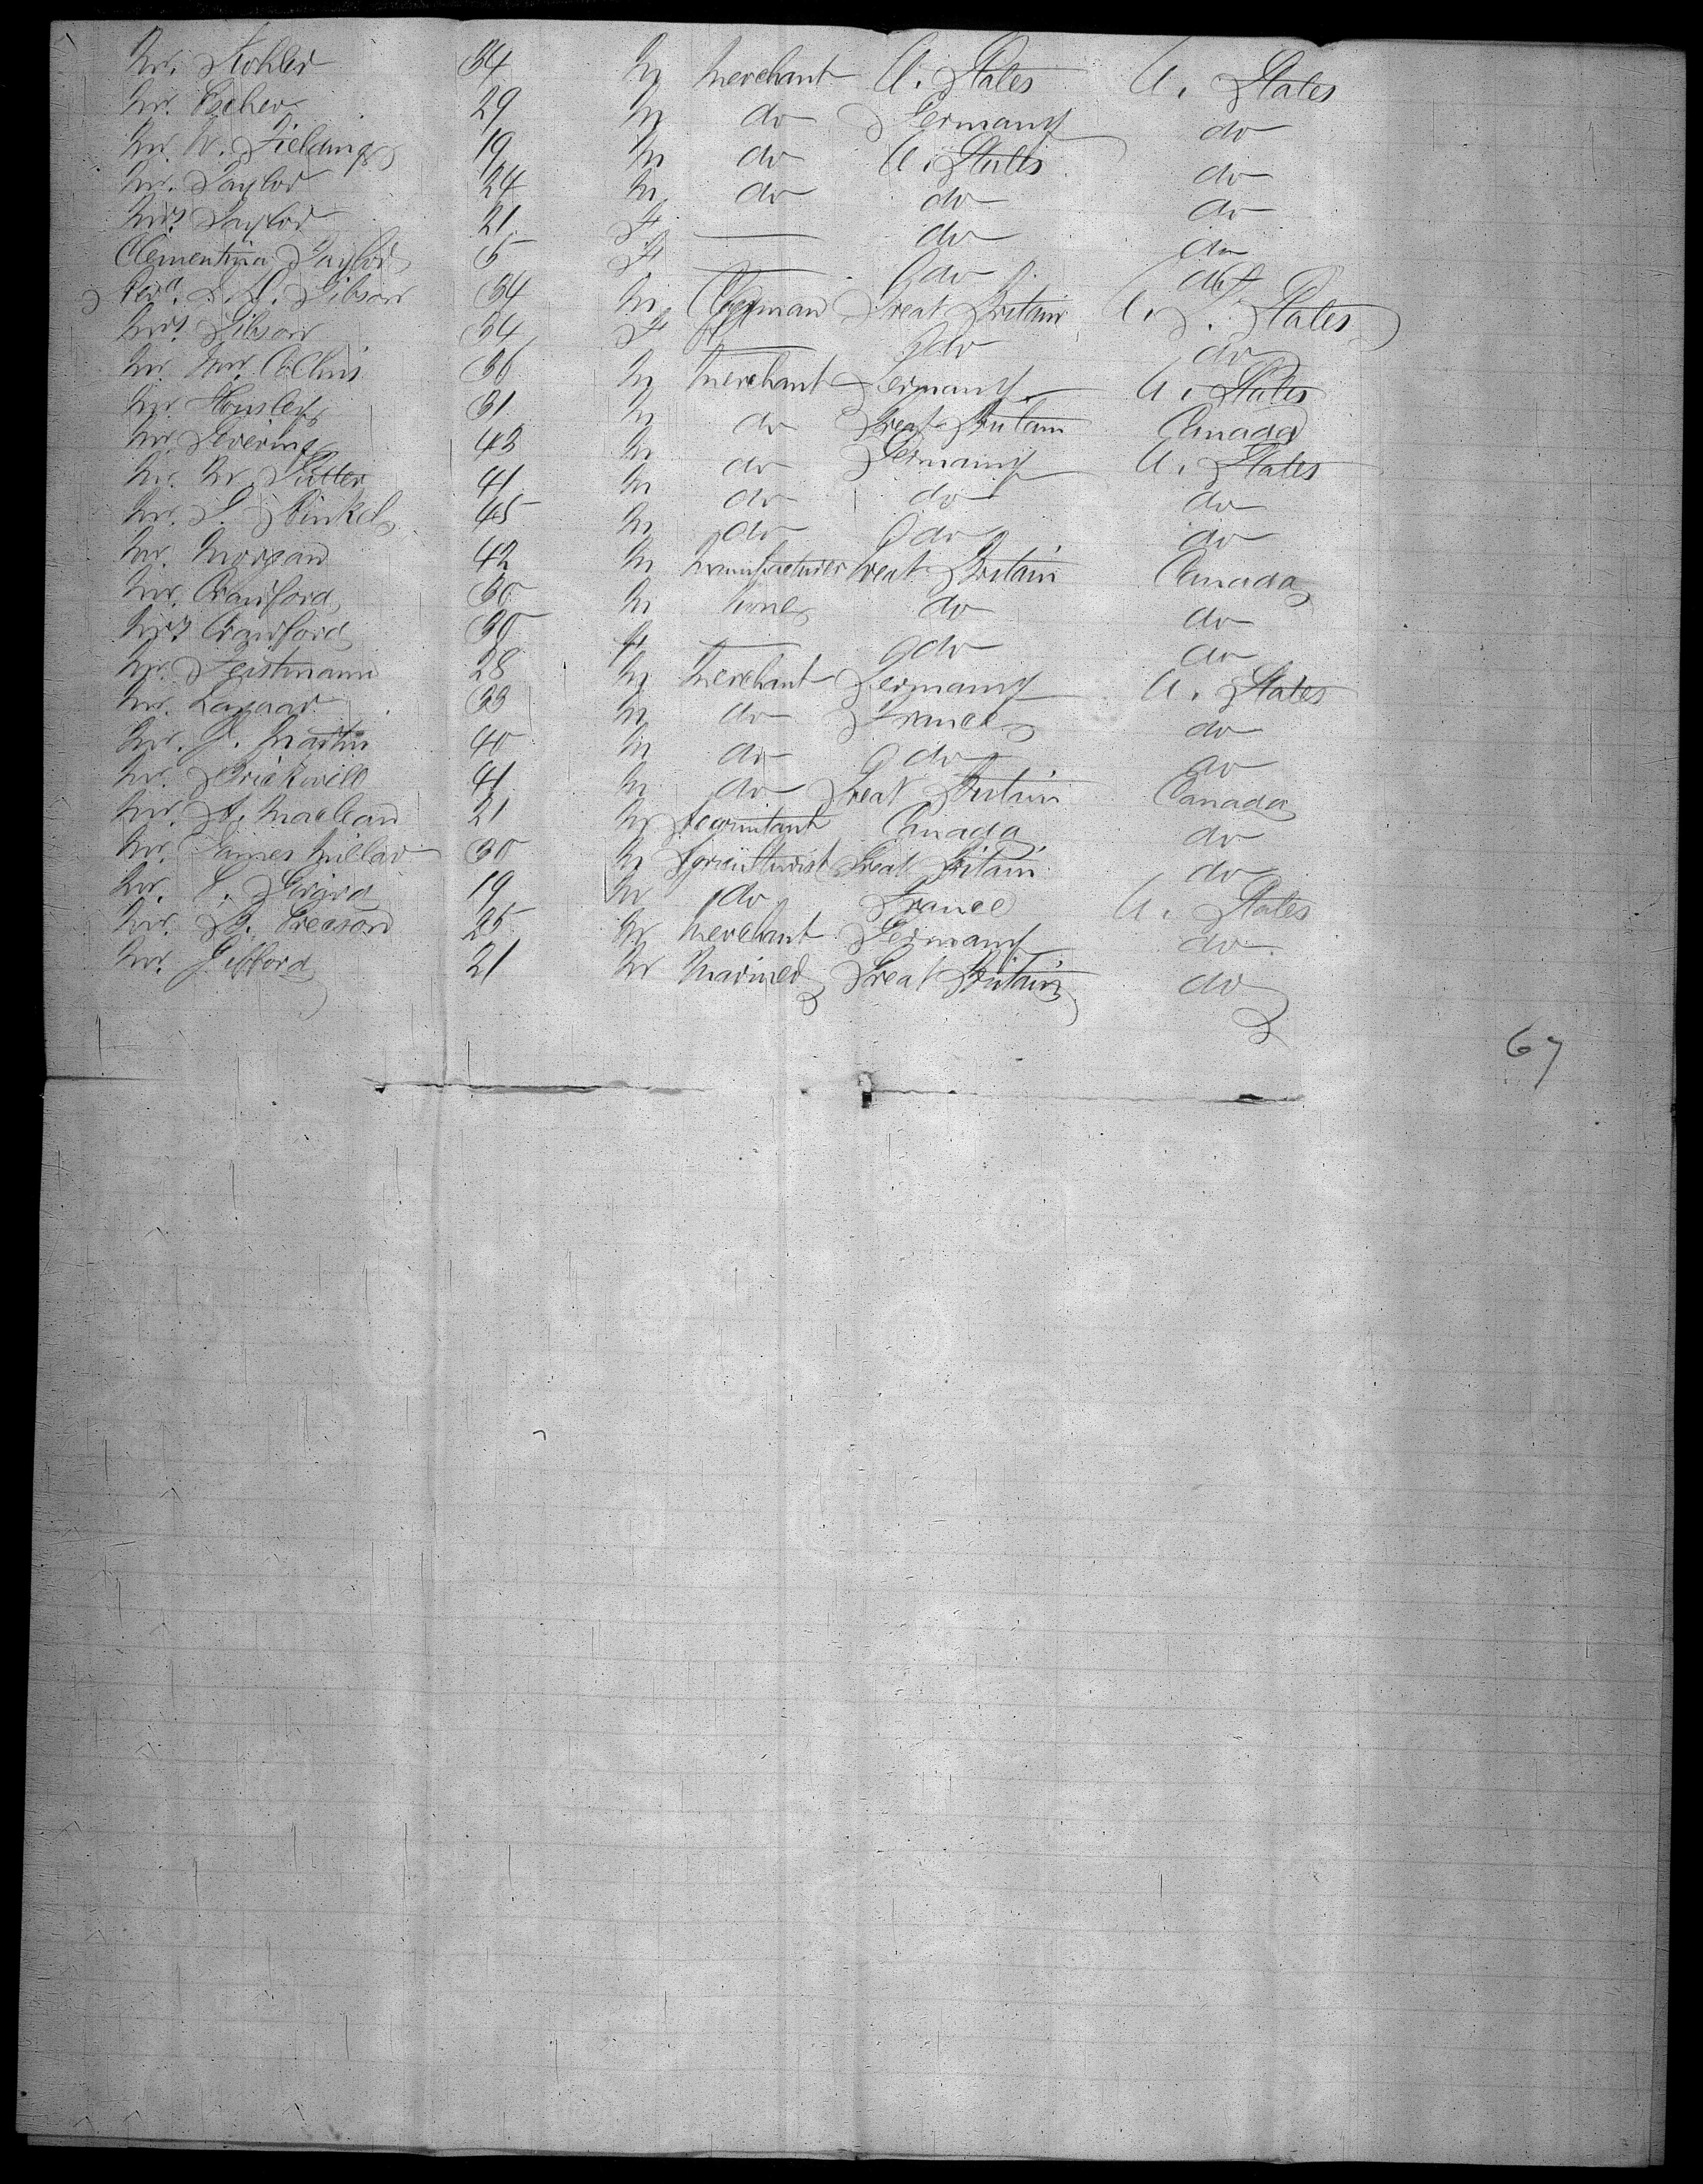 Mr. Kohler 34 M Merchant U. States U. States
Mr. Escher 29 M do Germany do
Mr. W. Fielding 19 M do U. States do
Mr. Taylor 24 M do do do
Mrs Taylor 21 F — do do
Clementina Taylor 6 F — do do
Revd. Gibson 34 M Clergyman Great Britain U. States
Mrs Gibson 34 F — do do
Mr. Wm. Collins 36 M Merchant Germany U. States
Mr. Housley 31 M do Great Britain Canada
Mr. Levering 43 M do Germany U. States
Mr. M. 41 M do do do
Mr. 45 M do do do
Mr. Morgan 42 M Manufacturer Great Britain Canada
Mr. Crawford 30 M None do do
Mrs Crawford 30 F — do do
Mr. Feistmann 28 M Merchant Germany U. States
Mr. 33 M do France do
Mr. J. Martin 40 M do do do
Mr. 41 M do Great Britain Canada
Mr. A. Maclean 21 M Accountant Canada do
Mr. James Millar 30 M Agriculturist Great Britain do
Mr. 19 M do France U. States
Mr. 25 M Merchant Germany do
Mr. Gifford 21 M Mariner Great Britain do
67